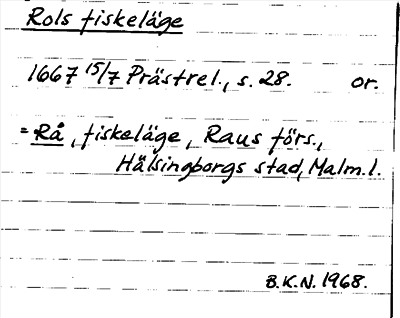 Rols fiskeläge
1667 15/7 Prästrel., s. 28. or.
= Rå, fiskeläge, Raus förs.,
Hälsingborgs stad, Malm.l.
B.K.N. 1968.